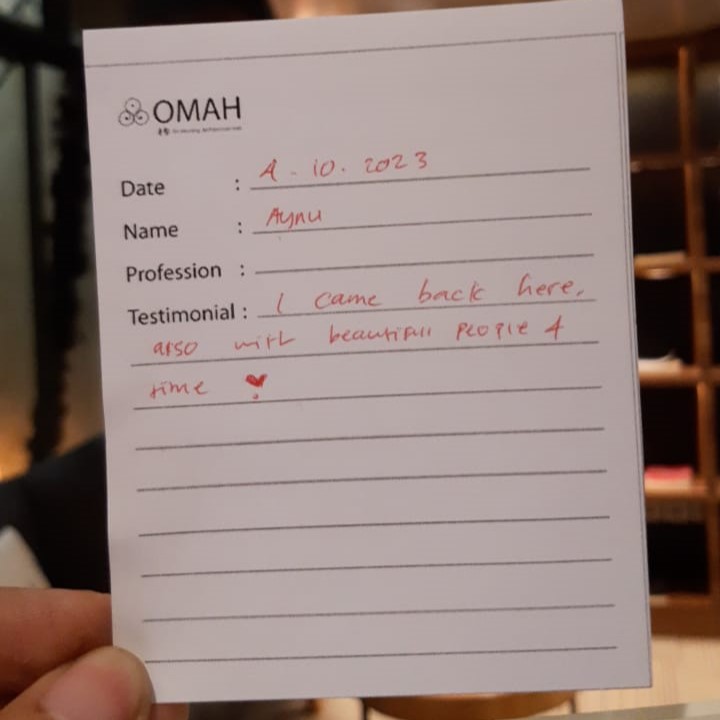 OMAH
Date : 4 . 10 . 2023
Name : Aynu
Profession :
Testimonial : I came back here,
also with beautiful people &
time ♥